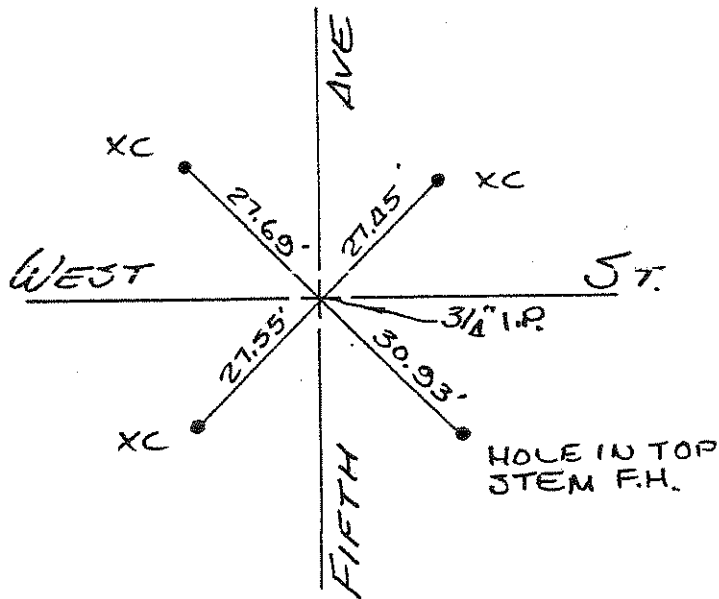 AVE
XC
XC
27.69'
27.45'
WEST ST.
3/4" I.P.
27.55'
30.93'
XC
HOLE IN TOP
STEM F.H.
FIFTH